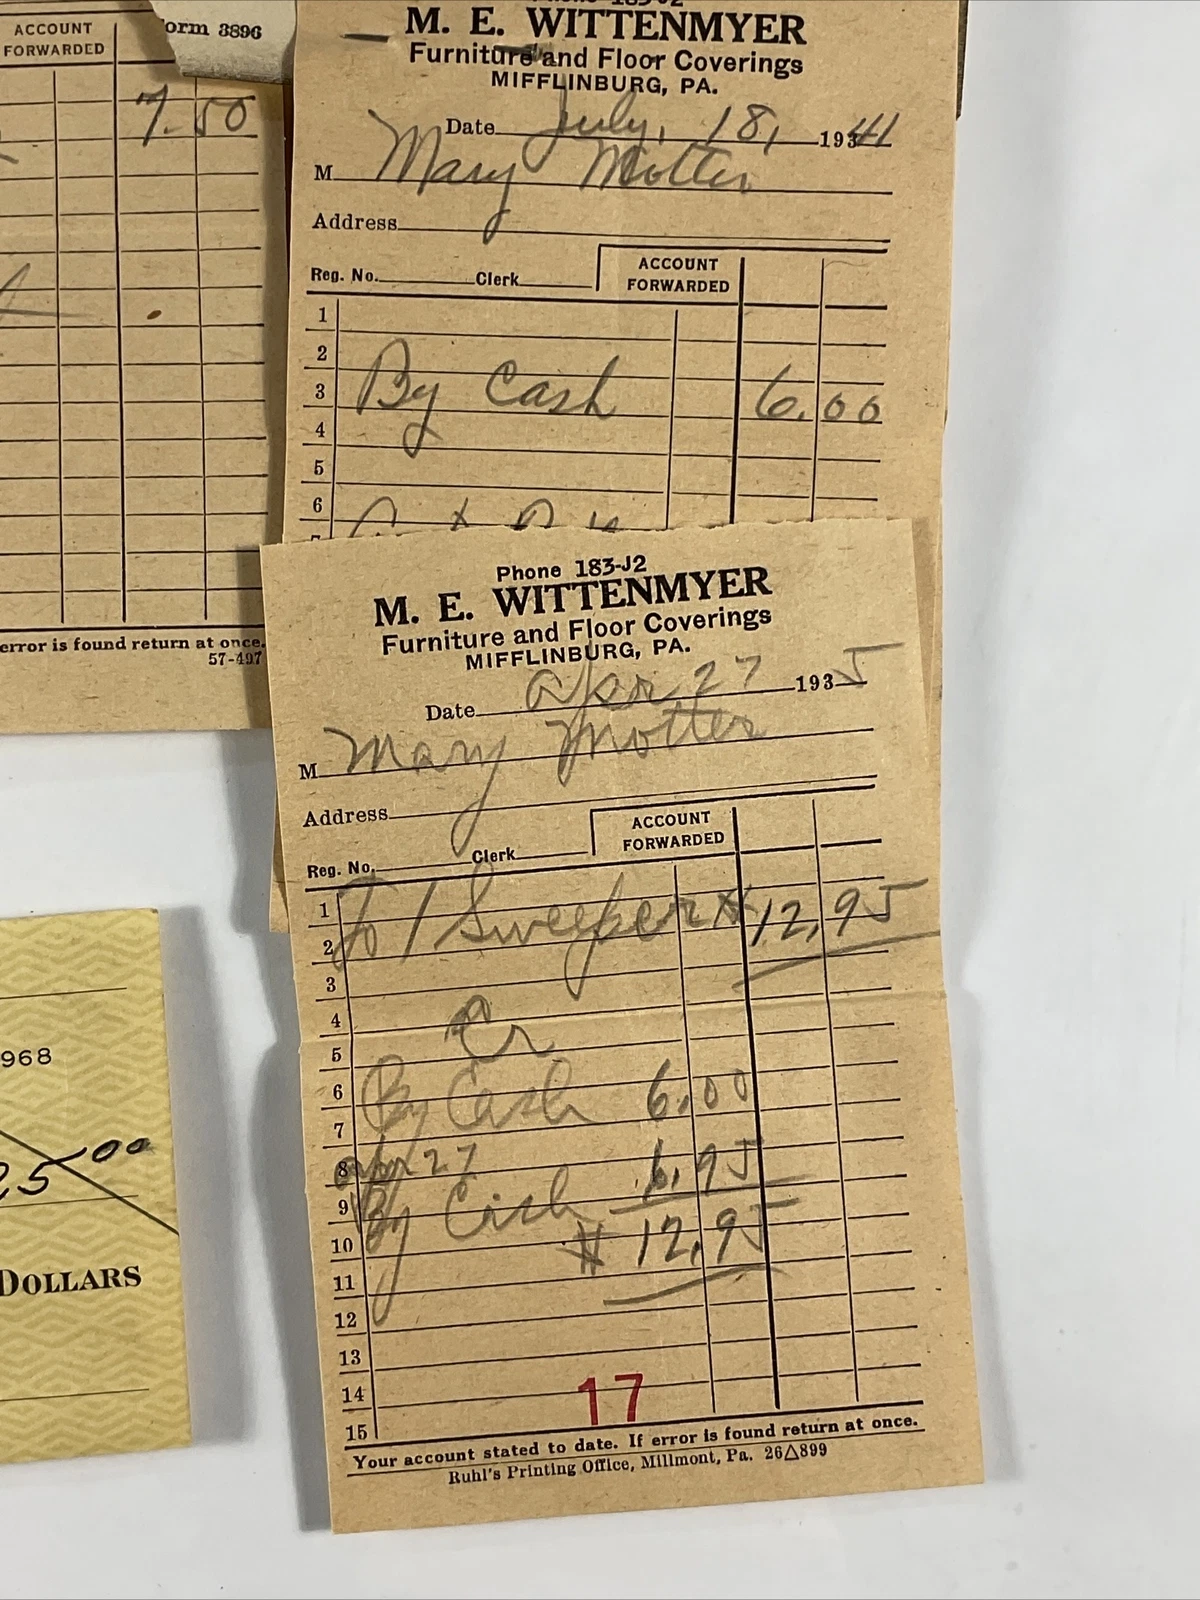 ACCOUNT
FORWARDED
orm 3896
7.50
error is found return at once.
57-497
M. E. WITTENMYER
Furniture and Floor Coverings
MIFFLINBURG, PA.
Date July, 18, 19341
M Mary Motter
Address
Reg. No. Clerk
ACCOUNT
FORWARDED
1
2
3 By Cash 6.00
4
5
6
Phone 183-J2
M. E. WITTENMYER
Furniture and Floor Coverings
MIFFLINBURG, PA.
Date Apr 27 1935
M Mary Motter
Address
Reg. No. Clerk
ACCOUNT
FORWARDED
1 To 1 Sweeper # 12,95
2
3
4 Cr
5
6 By Cash 6.00
7
8 Apr 27 6.95
9 By Cash
10 # 12.95
11
12
13
14
17
15
Your account stated to date. If error is found return at once.
Ruhl's Printing Office, Millmont, Pa. 26△899
968
25 00
DOLLARS